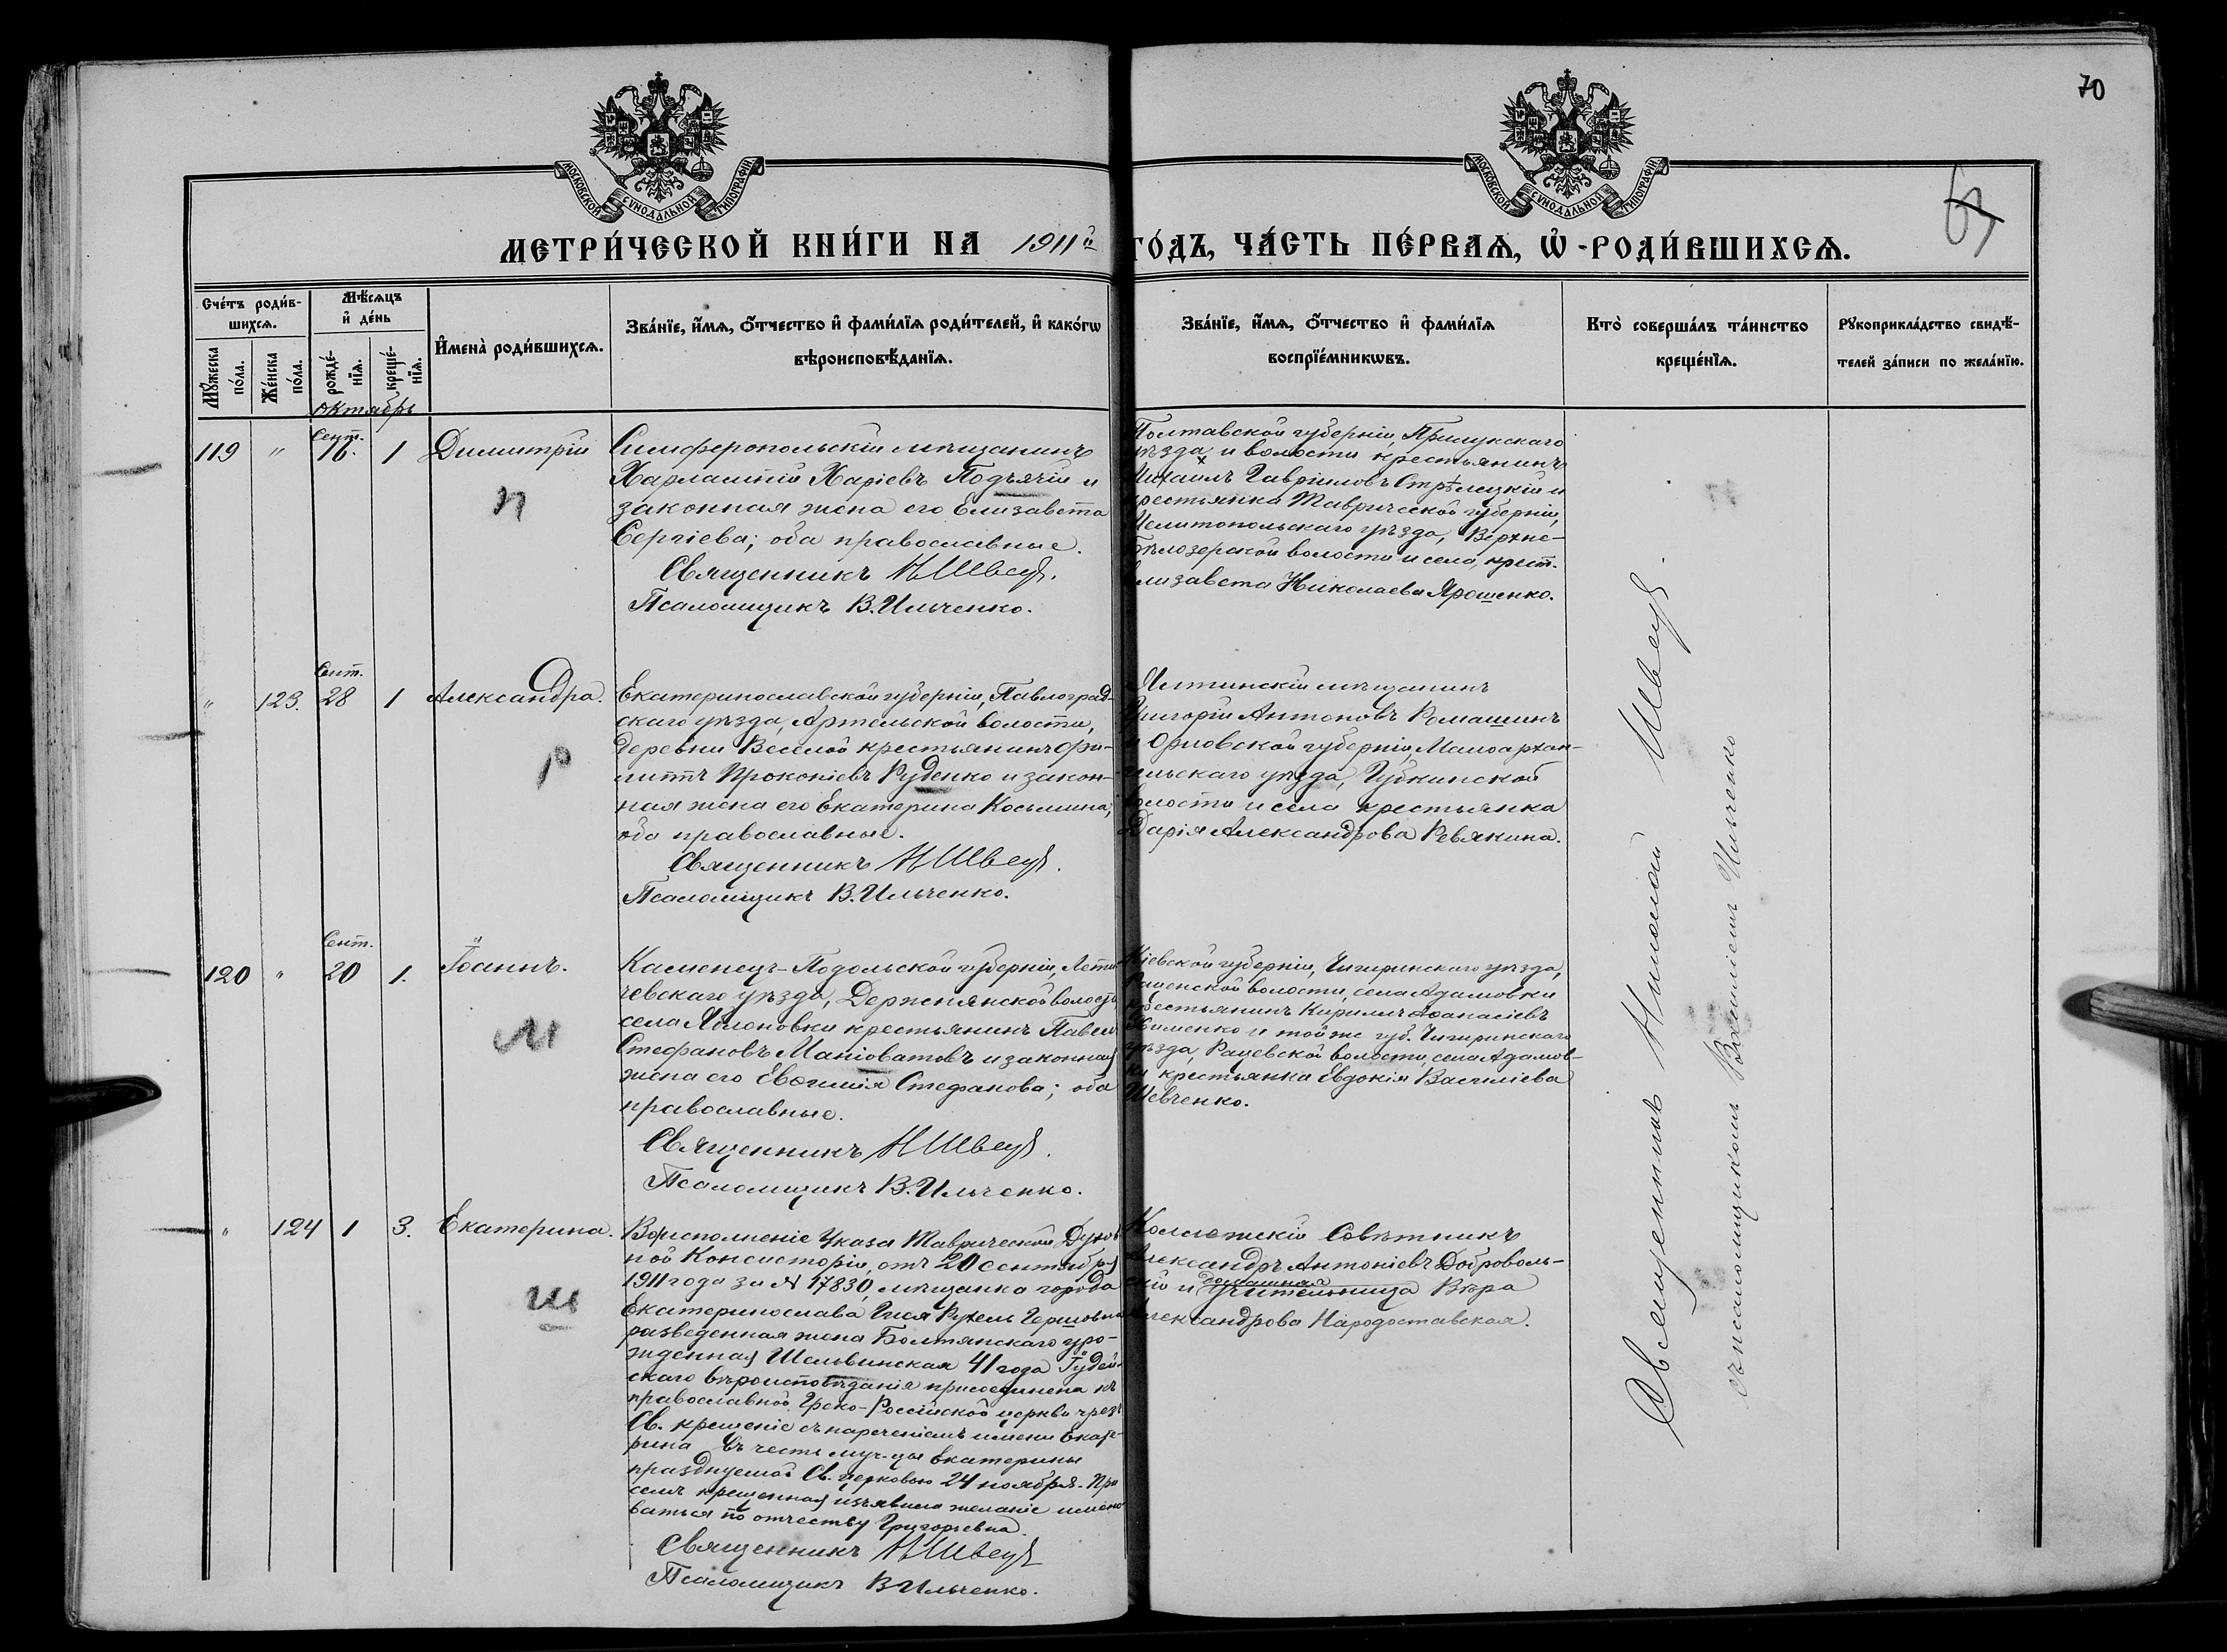 70
67
МОСКОВСКОЙ СѴНОДАЛЬНОЙ ТИПОГРАФІИ
МОСКОВСКОЙ СѴНОДАЛЬНОЙ ТИПОГРАФІИ
МЕТРИ́ЧЕСКОЙ КНИ́ГИ НА 1911й ГО́ДЪ, ЧА́СТЬ ПЕ́РВАѦ, Ѡ҆ РОДИ́ВШИХСѦ.
Сче́тъ роди́в-
шихсѧ.
Мꙋ́жеска
по́ла.
Же́нска
по́ла.
Мѣ́сѧцъ
и҆ де́нь
рожде́-
нїѧ.
креще́-
нїѧ.
И҆мена̀ роди́вшихсѧ.
Зва́нїе, и҆́мѧ, ѻ҆́тчество и҆ фами́лїѧ роди́телей, и҆ како́гѡ
вѣроисповѣ́данїѧ.
Зва́нїе, и҆́мѧ, ѻ҆́тчество и҆ фами́лїѧ
воспрїе́мникѡвъ.
Кто̀ соверша́лъ та́инство
креще́нїѧ.
Рꙋкоприкла́дство свидѣ́-
телей за́писи по жела́нїю.
Октябрь
119 " Сент. 16. 1 Димитрій
П
Симферопольскій мѣщанинъ
Харлампій Харіевъ Подъячій и
законная жена его Елизавета
Сергіева; оба православные.
Священникъ Н Швецъ.
Псаломщикъ В. Ильченко.
Полтавской губерніи, Прилукскаго
уѣзда и волости крестьянинъ
Михаилъ Гавріиловъ Стрѣлецкій и
крестьянка Таврической губерніи,
Мелитопольскаго уѣзда, Верхне-
Бѣлозерской волости и села, крест.
Елизавета Николаева Ярошенко.
" 123. Сент. 28 1 Александра.
Р
Екатеринославской губерніи, Павлоград-
скаго уѣзда, Артельской волости,
деревни Веселой крестьянинъ
Прокопіевъ Руденко и закон-
ная жена его Екатерина Косьмина;
оба православные.
Священникъ Н Швецъ.
Псаломщикъ В. Ильченко.
Ялтинскій мѣщанинъ
Григорій Антоновъ Ромашинъ
и Орловской губерніи, Малоархан-
гельскаго уѣзда, Губкинской
волости и села крестьянка
Дарія Александрова Ревякина.
120 " Сент. 20 1. Іоаннъ.
М
Каменецъ-Подольской губерніи, Лети-
чевскаго уѣзда, Деражнянской волости
села Яблоновки крестьянинъ Павелъ
Стефановъ Маніоватовъ и законная
жена его Евѳимія Стефанова; оба
православные.
Священникъ Н Швецъ.
Псаломщикъ В. Ильченко.
Кіевской губерніи, Чигиринскаго уѣзда,
волости, села Адамовки
крестьянинъ Кириллъ Аѳанасіевъ
и той же губ. Чигиринскаго
уѣзда, Рацевской волости, села Адамов-
ки крестьянка Евдокія Василіева
Шевченко.
" 124 1 3. Екатерина.
Ш
Во исполненіе Указа Таврической Духов-
ной Консисторіи, отъ 20 сентября
1911 года за № 17830, мѣщанка города
Екатеринослава Гися Рухель Гершовна
разведенная жена Болтянскаго уро-
жденная Шельвинская 41 года Іудей-
скаго вѣроисповѣданія присоединена къ
православной Греко-Россійской церкви чрезъ
Св. крещеніе съ нареченіемъ имени Екате-
рина въ честь муч-цы Екатерины
празднуемой Св. церковью 24 ноября. При
семъ крещенная изъявила желаніе имено-
ваться по отчеству Григорьевна.
Священникъ Н Швецъ
Псаломщикъ В Ильченко.
Коллежскій Совѣтникъ
Александръ Антоніевъ Доброволь-
скій и домашняя учительница Вѣра
Александрова Народоставская.
Священникъ Николай Швецъ.
съ псаломщикомъ Василіемъ Ильченко